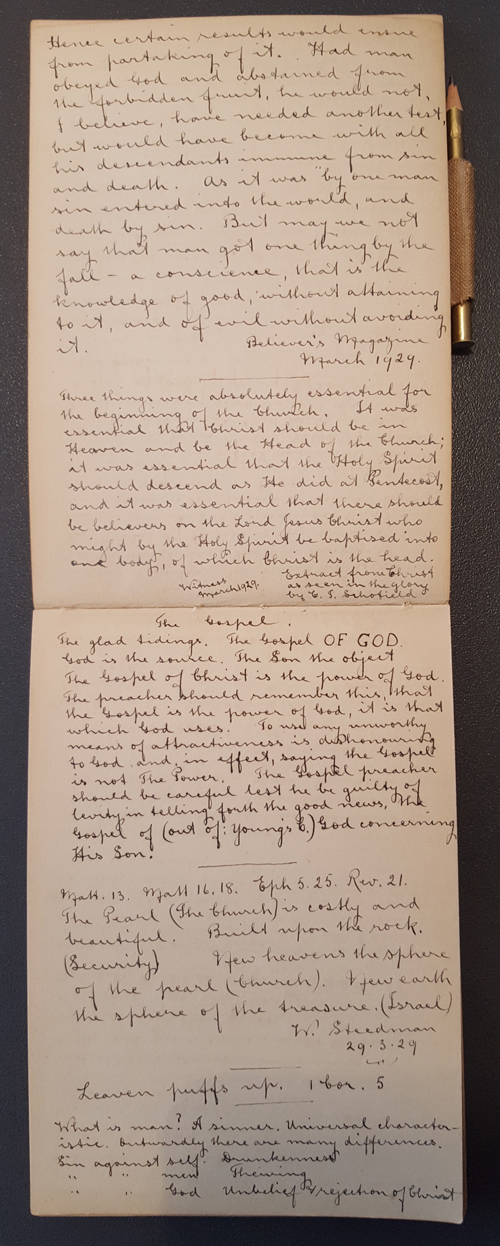 Hence certain results would ensue
from partaking of it. Had man
obeyed God and abstained from
the forbidden fruit, he would not,
I believe, have needed another test,
but would have become with all
his descendants immune from sin
and death. As it was "by one man
sin entered into the world, and
death by sin. But may we not
say that man got one thing by the
fall – a conscience, that is the
knowledge of good, without attaining
to it, and of evil without avoiding
it.
Believer's Magazine
March 1929.
Three things were absolutely essential for
the beginning of the Church. It was
essential that Christ should be in
Heaven and be the Head of the Church;
it was essential that the Holy Spirit
should descend as He did at Pentecost,
and it was essential that there should
be believers on the Lord Jesus Christ who
might by the Holy Spirit be baptised into
one body, of which Christ is the head.
Witness March 1929.
Extract from Christ
as seen in the glory
by C. I. Schofield
The Gospel.
The glad tidings. The Gospel OF GOD.
God is the source. The Son the object
The Gospel of Christ is the power of God.
The preacher should remember this, that
the Gospel is the power of God, it is that
which God uses. To use any unworthy
means of attractiveness is dishonouring
to God and, in effect, saying the Gospel
is not The Power. The Gospel preacher
should be careful lest he be guilty of
levity, in telling forth the good news, the
Gospel of (out of: Young's C.) God concerning
His Son.
Matt. 13. Matt 16.18. Eph 5.25. Rev. 21.
The Pearl (The Church) is costly and
beautiful. Built upon the rock.
(Security) New heavens the sphere
of the pearl (Church). New earth
the sphere of the treasure. (Israel)
W. Steedman
29.3.29
Leaven puffs up. 1 Cor. 5
What is man? A sinner. Universal character-
istic. Outwardly there are many differences.
Sin against self. Drunkenness
" " men Thieving
" " God Unbelief & rejection of Christ